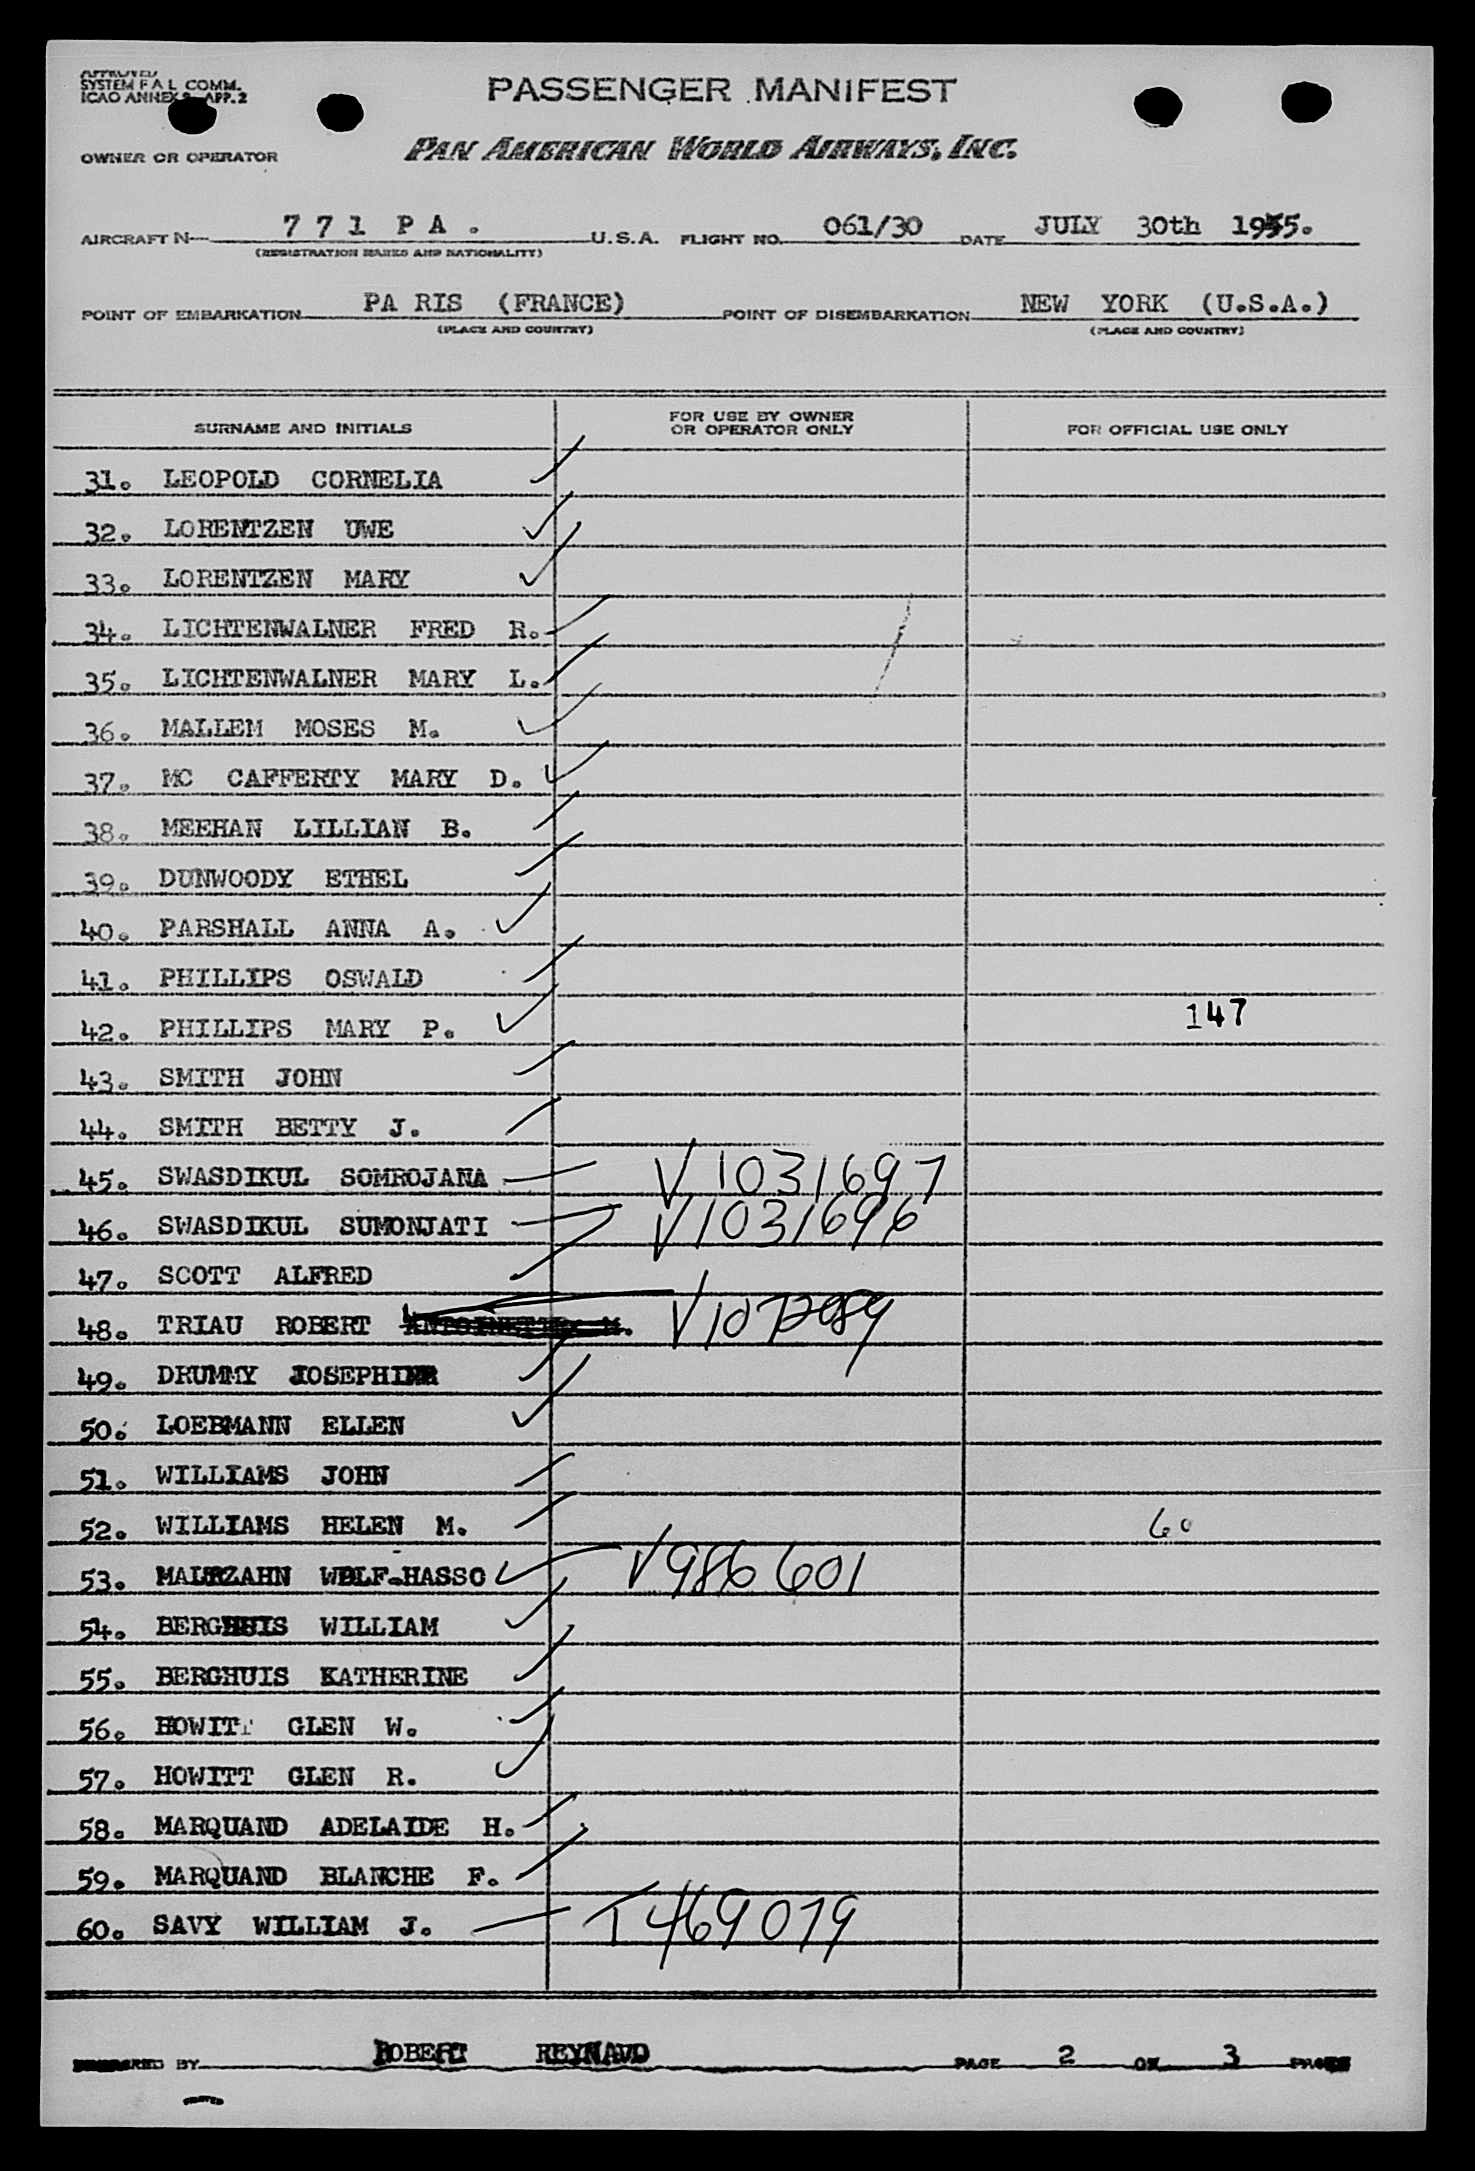 APPROVED
SYSTEM F A L COMM.
ICAO ANNEX 9 APP. 2
PASSENGER MANIFEST
OWNER OR OPERATOR PAN AMERICAN WORLD AIRWAYS, INC.
AIRCRAFT N 7 7 1 P A . U.S.A. FLIGHT NO. 061/30 DATE JULY 30th 1955.
(REGISTRATION MARKS AND NATIONALITY)
POINT OF EMBARKATION PA RIS (FRANCE) POINT OF DISEMBARKATION NEW YORK (U.S.A.)
(PLACE AND COUNTRY) (PLACE AND COUNTRY)
SURNAME AND INITIALS FOR USE BY OWNER OR OPERATOR ONLY FOR OFFICIAL USE ONLY
31. LEOPOLD CORNELIA
32. LORENTZEN UWE
33. LORENTZEN MARY
34. LICHTENWALNER FRED R.
35. LICHTENWALNER MARY L.
36. MALLEM MOSES M.
37. MC CAFFERTY MARY D.
38. MEEHAN LILLIAN B.
39. DUNWOODY ETHEL
40. PARSHALL ANNA A.
41. PHILLIPS OSWALD
42. PHILLIPS MARY P. 147
43. SMITH JOHN
44. SMITH BETTY J.
45. SWASDIKUL SOMROJANA V1031697
46. SWASDIKUL SUMONJATI V1031696
47. SCOTT ALFRED
48. TRIAU ROBERT
49. DRUMMY
50. LOEBMANN ELLEN
51. WILLIAMS JOHN
52. WILLIAMS HELEN M. 60
53. WOLF-HASSO V986601
54. BERGHUIS WILLIAM
55. BERGHUIS KATHERINE
56. HOWITT GLEN W.
57. HOWITT GLEN R.
58. MARQUAND ADELAIDE H.
59. MARQUAND BLANCHE F.
60. SAVY WILLIAM J. T469079
PREPARED BY ROBERT REYNAUD PAGE 2 OF 3 PAGES